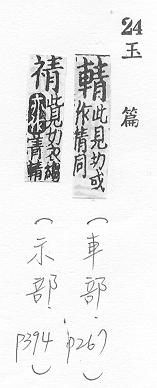 24
玉篇
輤 此見切或作蒨同
（車部 p267）
此見切
（示部 p394）